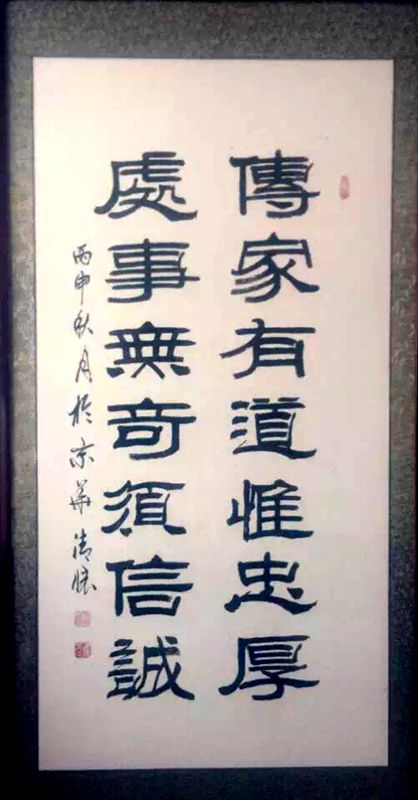 傳家有道惟忠厚
處事無奇須信誠
丙申秋月於京華清懷